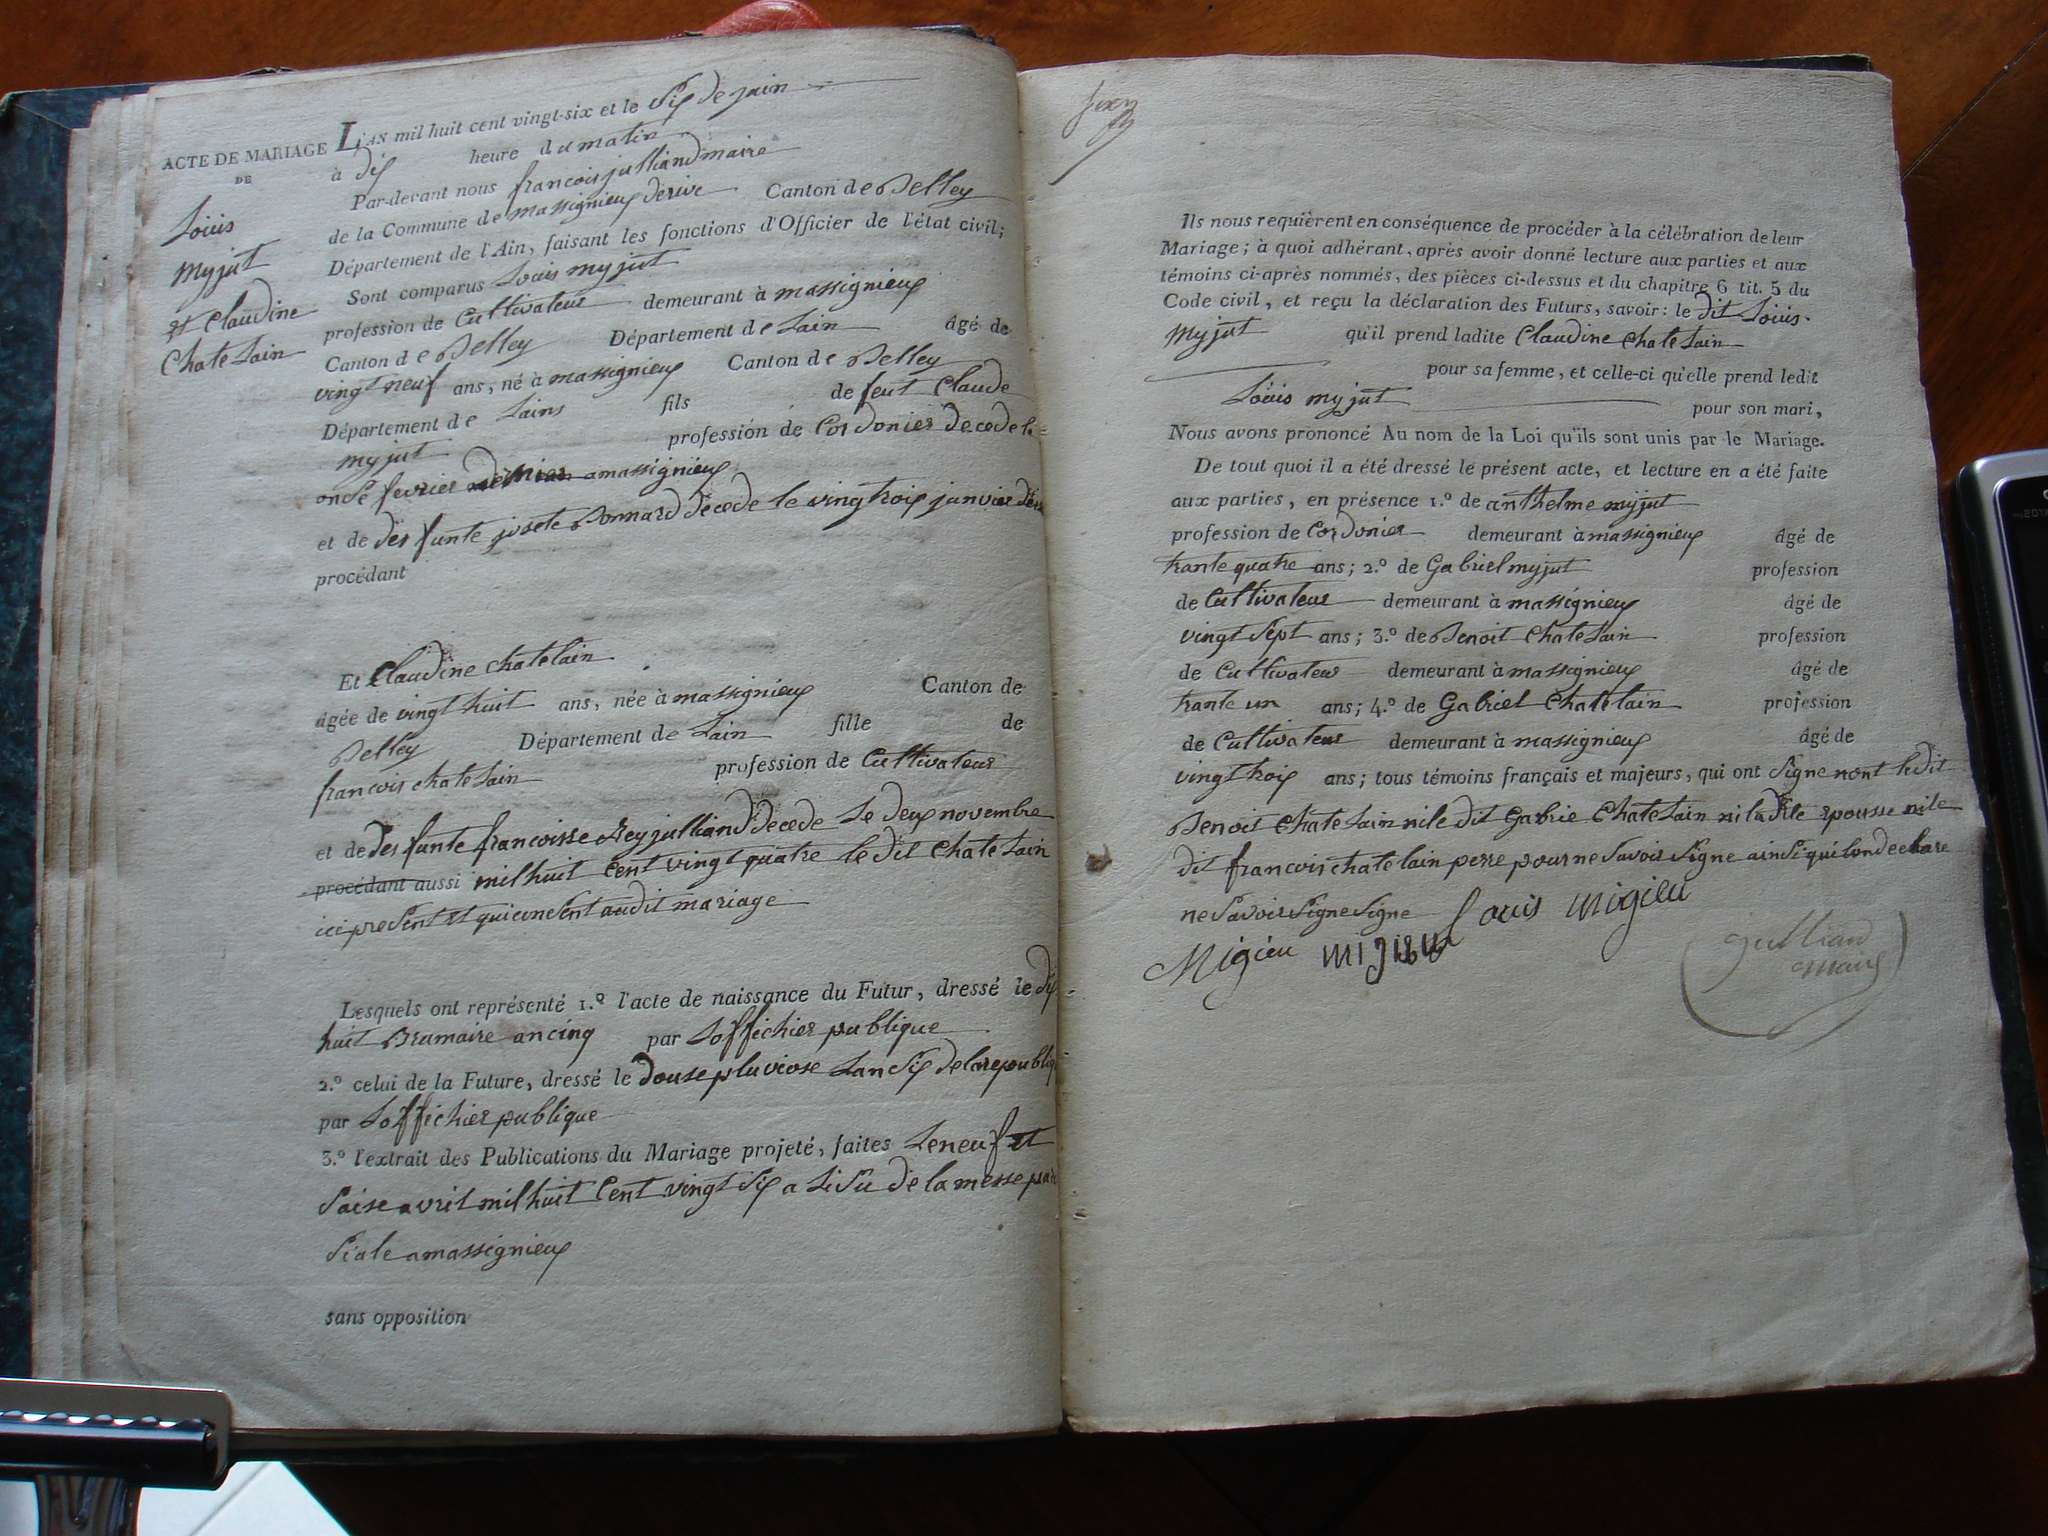 ACTE DE MARIAGE
DE
Loüis
myjut
et Claudine
chatelain
L'AN mil huit cent vingt-six et le Six de juin
à dix heure du matin
Par-devant nous francois julliand maire
de la Commune de massignieux derive Canton de Belley
Département de l'Ain, faisant les fonctions d'Officier de l'état civil;
Sont comparus Loüis myjut
profession de Cultivateur demeurant à massignieux
Canton de Belley Département de Lain âgé de
vingt neuf ans, né à massignieux Canton de Belley
Département de Lains fils de feut Claude
myjut profession de Cordonier decede le
onse fevrier dernier a massignieux
et de desfunte josete Bonnard decede le vingtroix janvier der
procédant
Et Claudine chatelain
âgée de vingt huit ans, née à massignieux Canton de
Belley Département de Lain fille de
francois chatelain profession de Cultivateur
et de desfunte francoisse Rey julliand decede Le deux novembre
procédant aussi mil huit Cent vingt quatre le dit chatelain
ici present et qui consent audit mariage
Lesquels ont représenté 1.º l'acte de naissance du Futur, dressé le dix
huit Brumaire an cinq par Loffichier publique
2.º celui de la Future, dressé le douse pluviose Lan Six de larepubliq
par Loffichier publique
3.º l'extrait des Publications du Mariage projeté, faites Le neuf et
Saise avril mil huit Cent vingt Six a Lisüe de la messe paro
Siale a massignieux
sans opposition
Ils nous requièrent en conséquence de procéder à la célébration de leur
Mariage; à quoi adhérant, après avoir donné lecture aux parties et aux
témoins ci-après nommés, des pièces ci-dessus et du chapitre 6 tit. 5 du
Code civil, et reçu la déclaration des Futurs, savoir: le dit Loüis
myjut qu'il prend ladite Claudine chatelain
pour sa femme, et celle-ci qu'elle prend ledit
Loüis myjut pour son mari,
Nous avons prononcé Au nom de la Loi qu'ils sont unis par le Mariage.
De tout quoi il a été dressé le présent acte, et lecture en a été faite
aux parties, en présence 1.º de anthelme myjut
profession de Cordonier demeurant à massignieux âgé de
trante quatre ans; 2.º de Gabriel myjut profession
de Cultivateur demeurant à massignieux âgé de
vingt Sept ans; 3.º de Benoit chatelain profession
de Cultivateur demeurant à massignieux âgé de
trante un ans; 4.º de Gabriel chatelain profession
de Cultivateur demeurant à massignieux âgé de
vingtroix ans; tous témoins français et majeurs, qui ont Signe nont ledit
Benoit chatelain ni le dit Gabrie chatelain ni ladite epousse ni le
dit francois chatelain perre pour ne Savoir Signe ainsi qui londeclare
ne Savoir Signe Signe
Louis migieu
Migieu migieu
julliand
maire